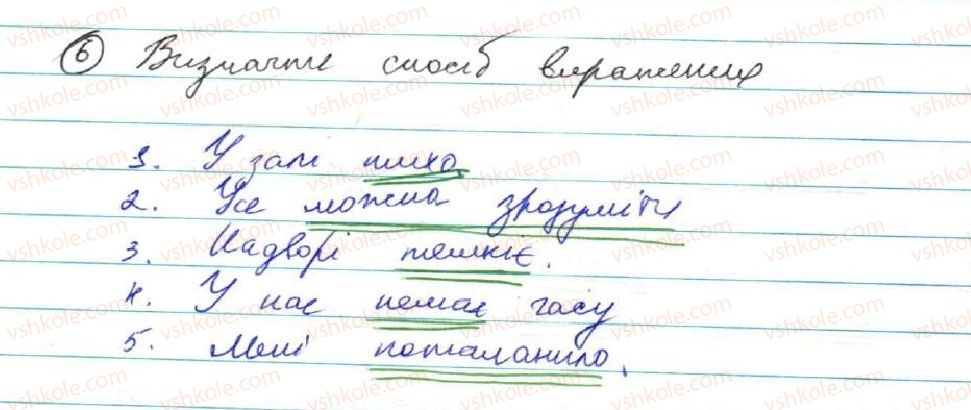 6 Визначте спосіб вираження
1. У залі тихо.
2. Усе можна зрозуміти
3. Надворі темніє.
4. У нас немає часу
5. Мені поталанило.
vshkole.com